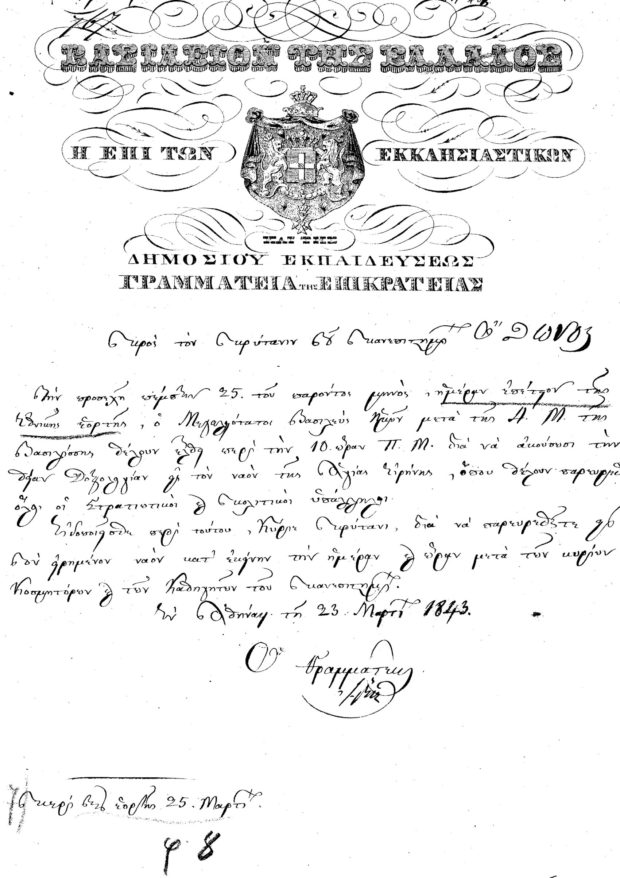 ΒΑΣΙΛΕΙΟΝ ΤΗΣ ΕΛΛΑΔΟΣ
Η ΕΠΙ ΤΩΝ ΕΚΚΛΗΣΙΑΣΤΙΚΩΝ
ΚΑΙ ΤΗΣ
ΔΗΜΟΣΙΟΥ ΕΚΠΑΙΔΕΥΣΕΩΣ
ΓΡΑΜΜΑΤΕΙΑ ΤΗΣ ΕΠΙΚΡΑΤΕΙΑΣ
Προς τον Πρύτανιν του Πανεπιστημ
Την προσεχή πέμπτην 25. του παρόντος μηνός, ημέραν επέτειον της
Εθνικής εορτής, ο Μεγαλειότατος Βασιλεύς ημών μετά της Α. Μ. της
Βασιλίσσης θέλουν ελθει περί την 10. ώραν Π. Μ. διά να ακούσωσι την
Δοξολογίαν εις τον ναόν της Αγίας Ειρήνης, όπου θέλουν
όλοι οι Στρατιωτικοί και πολιτικοί υπάλληλοι.
Ειδοποιείσθε περί τούτου, Κύριε Πρύτανι, διά να παρευρεθήτε εις
τον ειρημένον ναόν κατ' εκείνην την ημέραν και ώραν μετά των κυρίων
Κοσμητόρων και των Καθηγητών του Πανεπιστημ.
Εν Αθήναις τη 23 Μαρτ 1843.
Ο Γραμματεύς
Περί της εορτής 25 Μαρτ.
φ 8